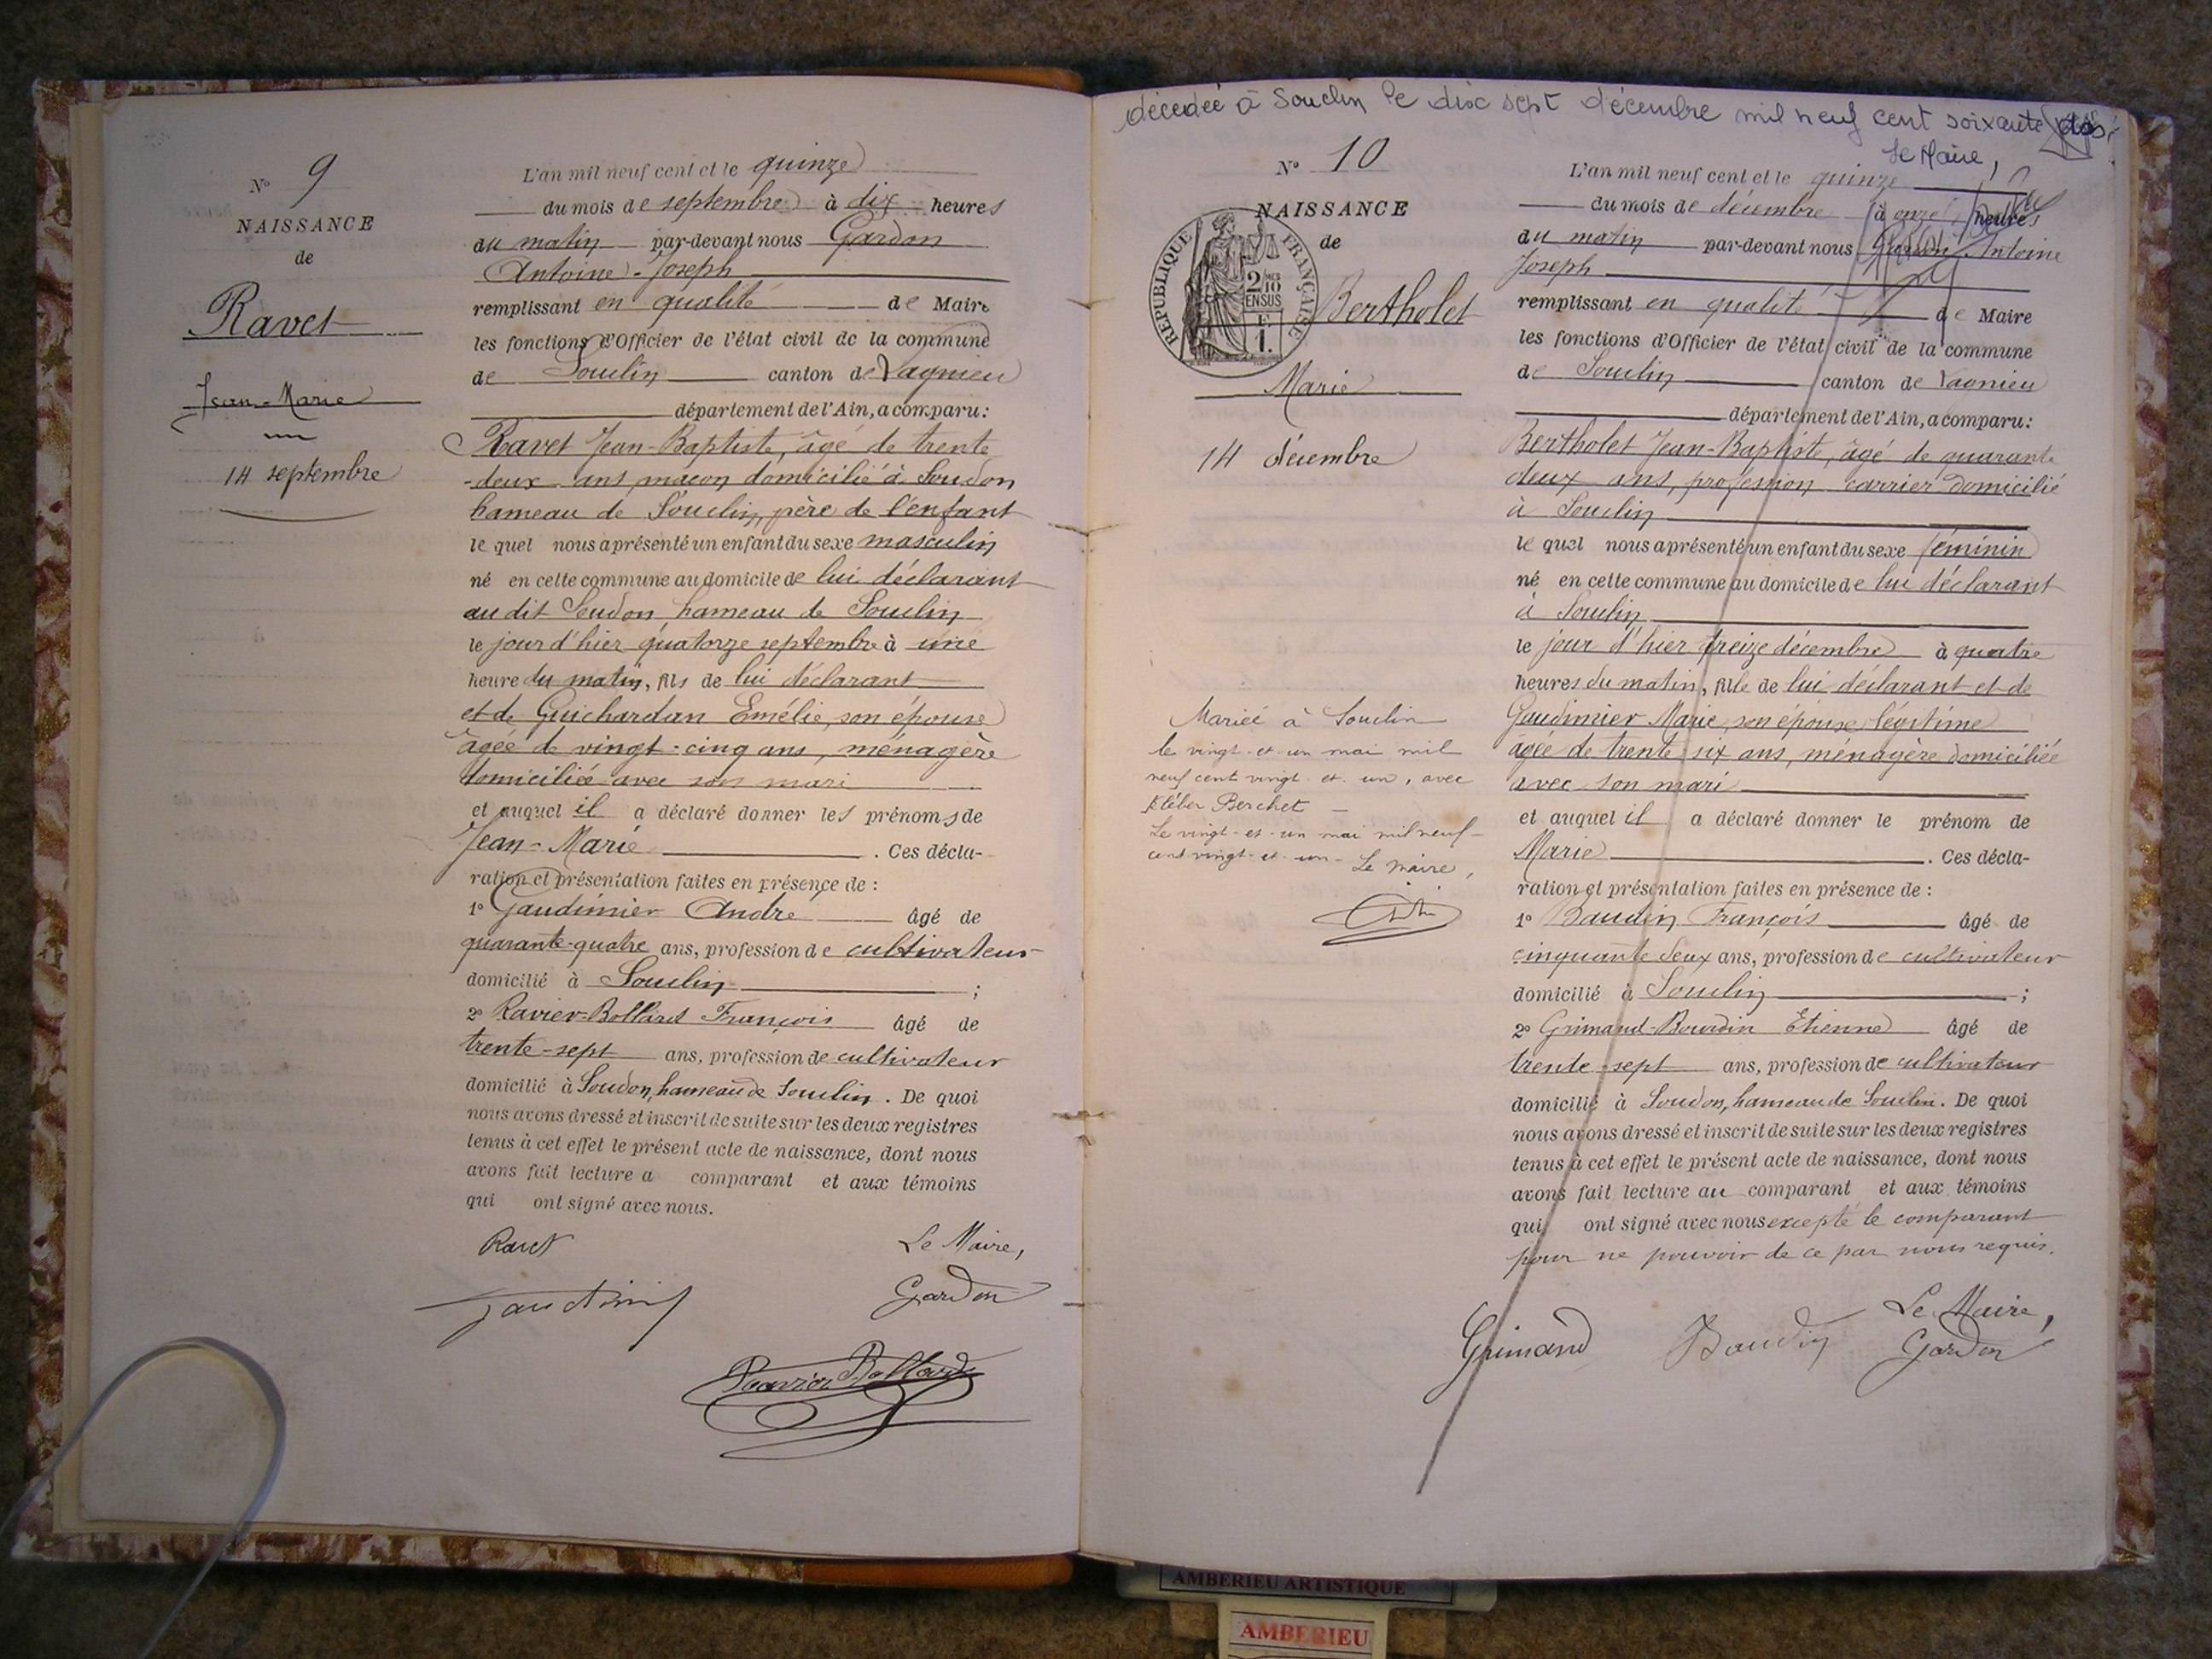 N° 9
NAISSANCE
de
Ravet
Jean-Marie
14 septembre
L'an mil neuf cent et le quinze
du mois de septembre à dix heures
du matin par-devant nous Gardon
Antoine-Joseph
remplissant en qualité de Maire
les fonctions d'Officier de l'état civil de la commune
de Souclin canton de Lagnieu
département de l'Ain, a comparu:
Ravet Jean-Baptiste, âgé de trente
-deux ans, maçon domicilié à Soudon
hameau de Souclin, père de l'enfant
le quel nous a présenté un enfant du sexe masculin
né en cette commune au domicile de lui déclarant
au dit Soudon, hameau de Souclin
le jour d'hier quatorze septembre à une
heure du matin, fils de lui déclarant
et de Guichardan Emélie, son épouse
âgée de vingt-cinq ans, ménagère
domiciliée avec son mari
et auquel il a déclaré donner les prénoms de
Jean-Marie . Ces décla-
ration et présentation faites en présence de :
1° Gaudimier André âgé de
quarante-quatre ans, profession de cultivateur
domicilié à Souclin ;
2° Ravier-Bollard François âgé de
trente-sept ans, profession de cultivateur
domicilié à Soudon, hameau de Souclin. De quoi
nous avons dressé et inscrit de suite sur les deux registres
tenus à cet effet le présent acte de naissance, dont nous
avons fait lecture a comparant et aux témoins
qui ont signé avec nous.
Ravet Le Maire,
Gaudimier Gardon
Ravier Bollard
décédée à Souclin le dix sept décembre mil neuf cent soixante
Le Maire,
N° 10
NAISSANCE
de
REPUBLIQUE FRANÇAISE
2/10 MES
EN SUS
1.
Bertholet
Marie
14 décembre
Mariée à Souclin
le vingt-et-un mai mil
neuf cent vingt-et-un, avec
Kléber Berchet –
Le vingt-et-un mai mil neuf-
cent vingt-et-un – Le maire,
L'an mil neuf cent et le quinze
du mois de décembre à onze heures
du matin par-devant nous Gardon Antoine
Joseph
remplissant en qualité de Maire
les fonctions d'Officier de l'état civil de la commune
de Souclin canton de Lagnieu
département de l'Ain, a comparu:
Bertholet Jean-Baptiste, âgé de quarante
deux ans, profession carrier domicilié
à Souclin
le quel nous a présenté un enfant du sexe féminin
né en cette commune au domicile de lui déclarant
à Souclin
le jour d'hier treize décembre à quatre
heures du matin, fille de lui déclarant et de
Gaudimier Marie, son épouse légitime
âgée de trente six ans, ménagère domiciliée
avec son mari
et auquel il a déclaré donner le prénom de
Marie . Ces décla-
ration et présentation faites en présence de :
1° Baudin François âgé de
cinquante deux ans, profession de cultivateur
domicilié à Souclin ;
2° Grimand-Bourdin Etienne âgé de
trente-sept ans, profession de cultivateur
domicilié à Soudon, hameau de Souclin. De quoi
nous avons dressé et inscrit de suite sur les deux registres
tenus à cet effet le présent acte de naissance, dont nous
avons fait lecture au comparant et aux témoins
qui ont signé avec nous excepté le comparant
pour ne pouvoir de ce par nous requis.
Le Maire,
Grimand Baudin Gardon
AMBERIEU ARTISTIQUE
AMBERIEU